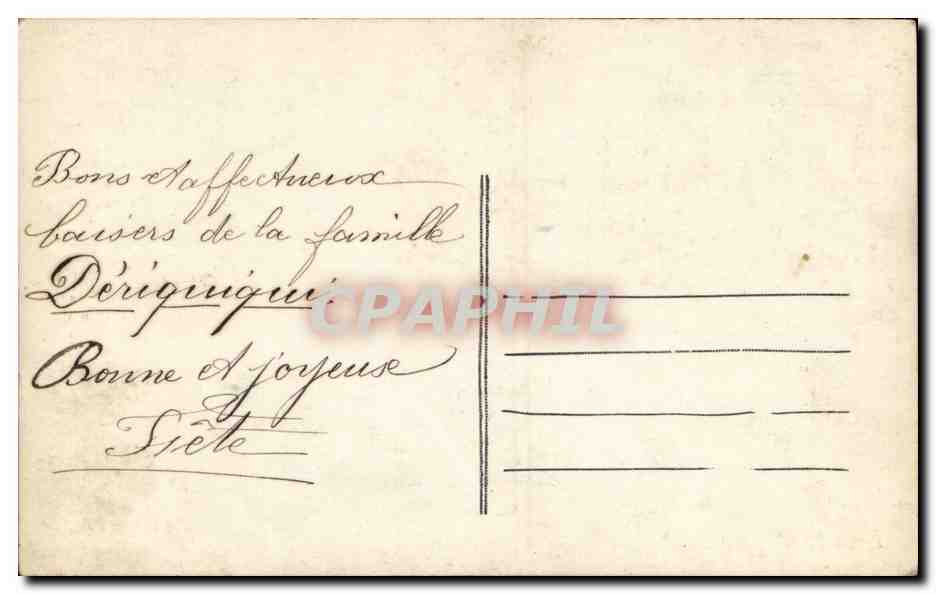 Bons et affectueux
baisers de la famille
Dériquiqui
CPAPHIL
Bonne et joyeuse
Fiête